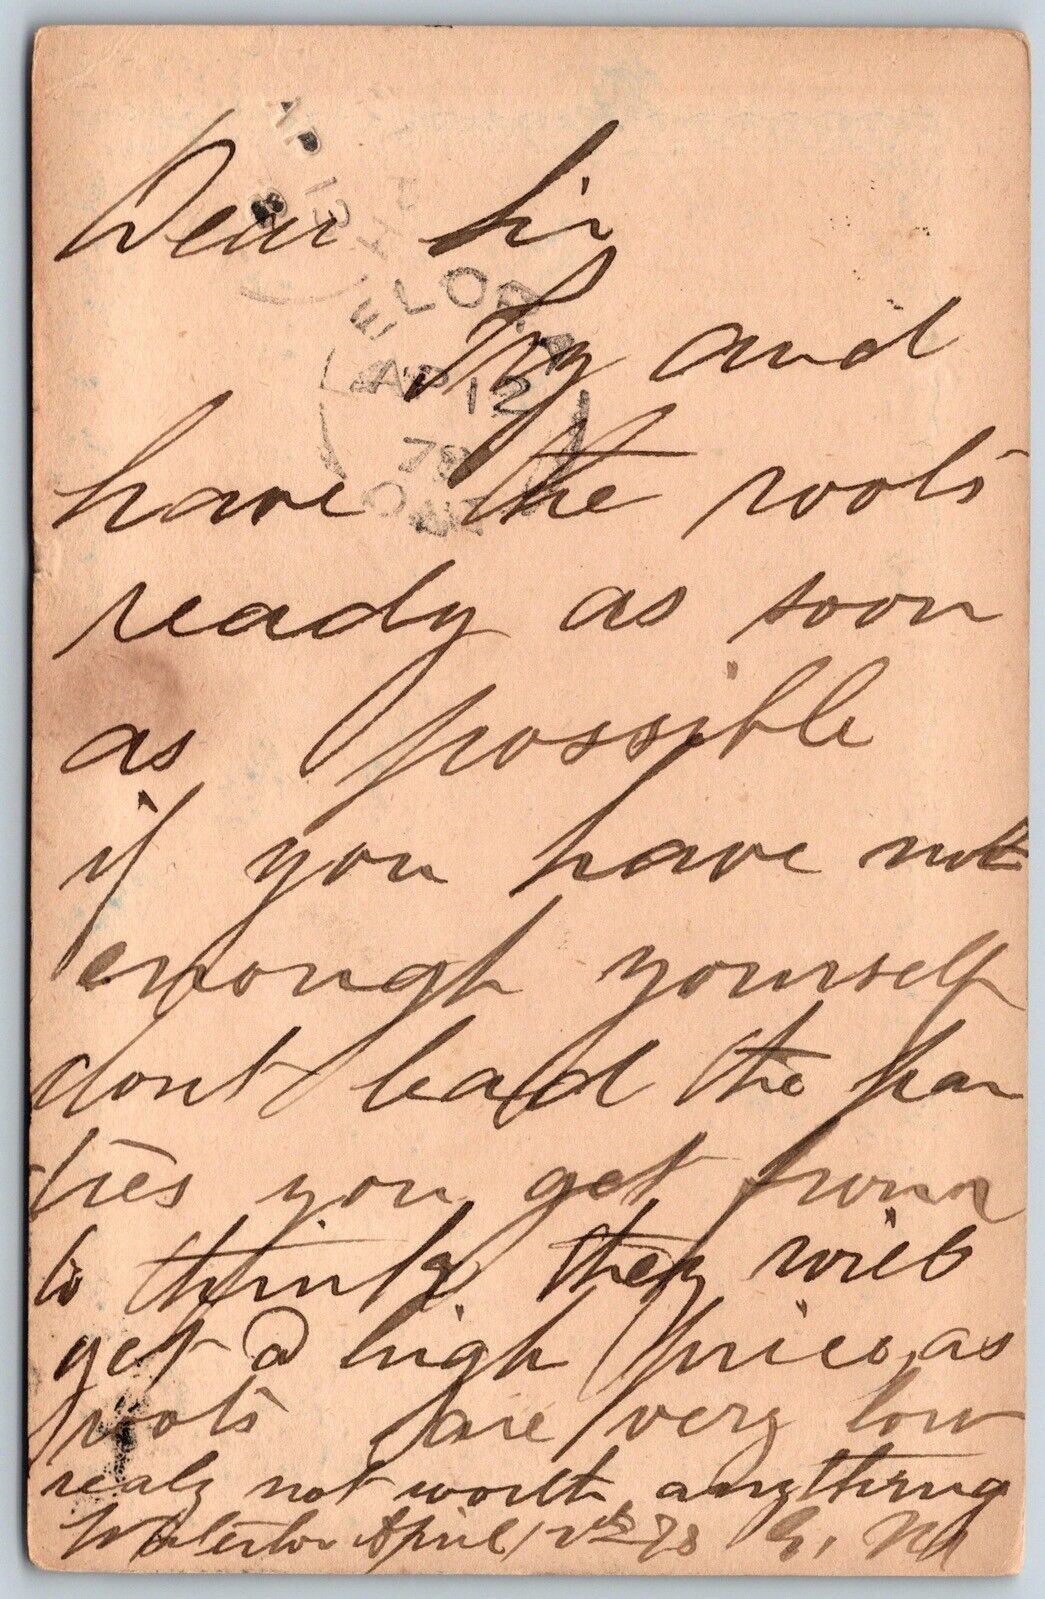 Dear Sir
Try and
have the roots
ready as soon
as possible
if you have not
enough yourself
dont lead the par
ties you get from
to think they will
get a high price, as
roots are very low
realy not worth anything
Waterloo April 12th 78 G.
AP 13
ELORA
AP 12
78
ONT